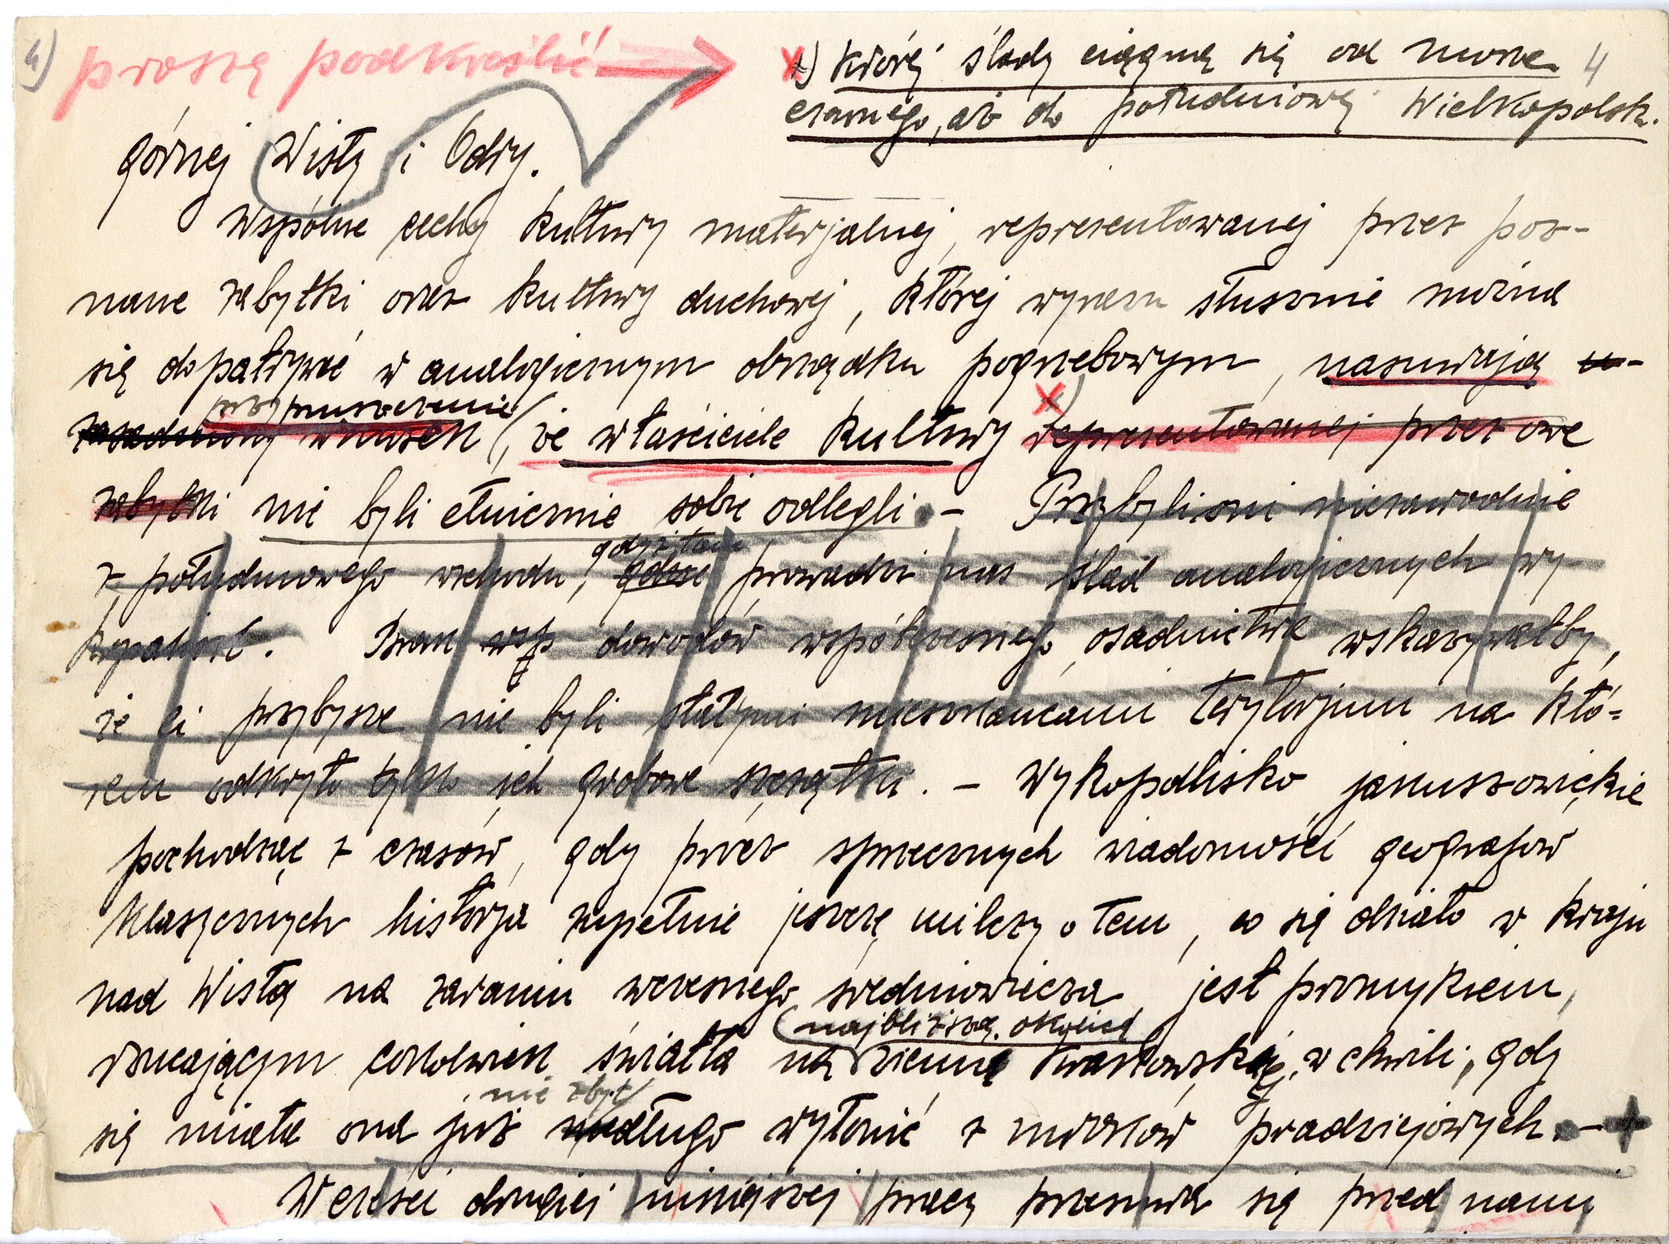 4) proszę podkreślić
x) której ślady ciągną się od morza 4
czarnego, aż do południowej Wielkopolsk.
górnej Wisły i Odry.
Wspólne cechy kultury materjalnej, reprezentowanej przez poz-
nane zabytki oraz kultury duchowej, której wyrazu słusznie można
się dopatrywać w analogicznym obrządku pogrzebowym, nasuwają u-
przypuszczenie
zasadniony wniosek, że właściciele kultury x) reprezentowanej przez owe
zabytki nie byli etnicznie sobie odlegli. – Przybyli oni niezawodnie
gdyż tam
z południowego wschodu, gdzie prowadzi nas ślad analogicznych wy-
kopalisk. Brak wsp dowodów współczesnego osadnictwa wskazywałby,
że ci przybysze nie byli stałymi mieszkańcami terytorjum na któ-
rem odkryto tylko ich grobowe szczątki. – Wykopalisko januszowickie
pochodząc z czasów, gdy prócz sprzecznych wiadomości geografów
klasycznych historja zupełnie jeszcze milczy o tem, co się działo w kraju
nad Wisłą na zaraniu wczesnego średniowiecza jest promykiem,
najbliższą okolicę
rzucającym cokolwiek światła na ziemię krakowską, w chwili, gdy
nie zbyt
się miała ona już niedługo wyłonić z mroków pradziejowych. – +
W części drugiej niniejszej pracy przesuwa się przed nami